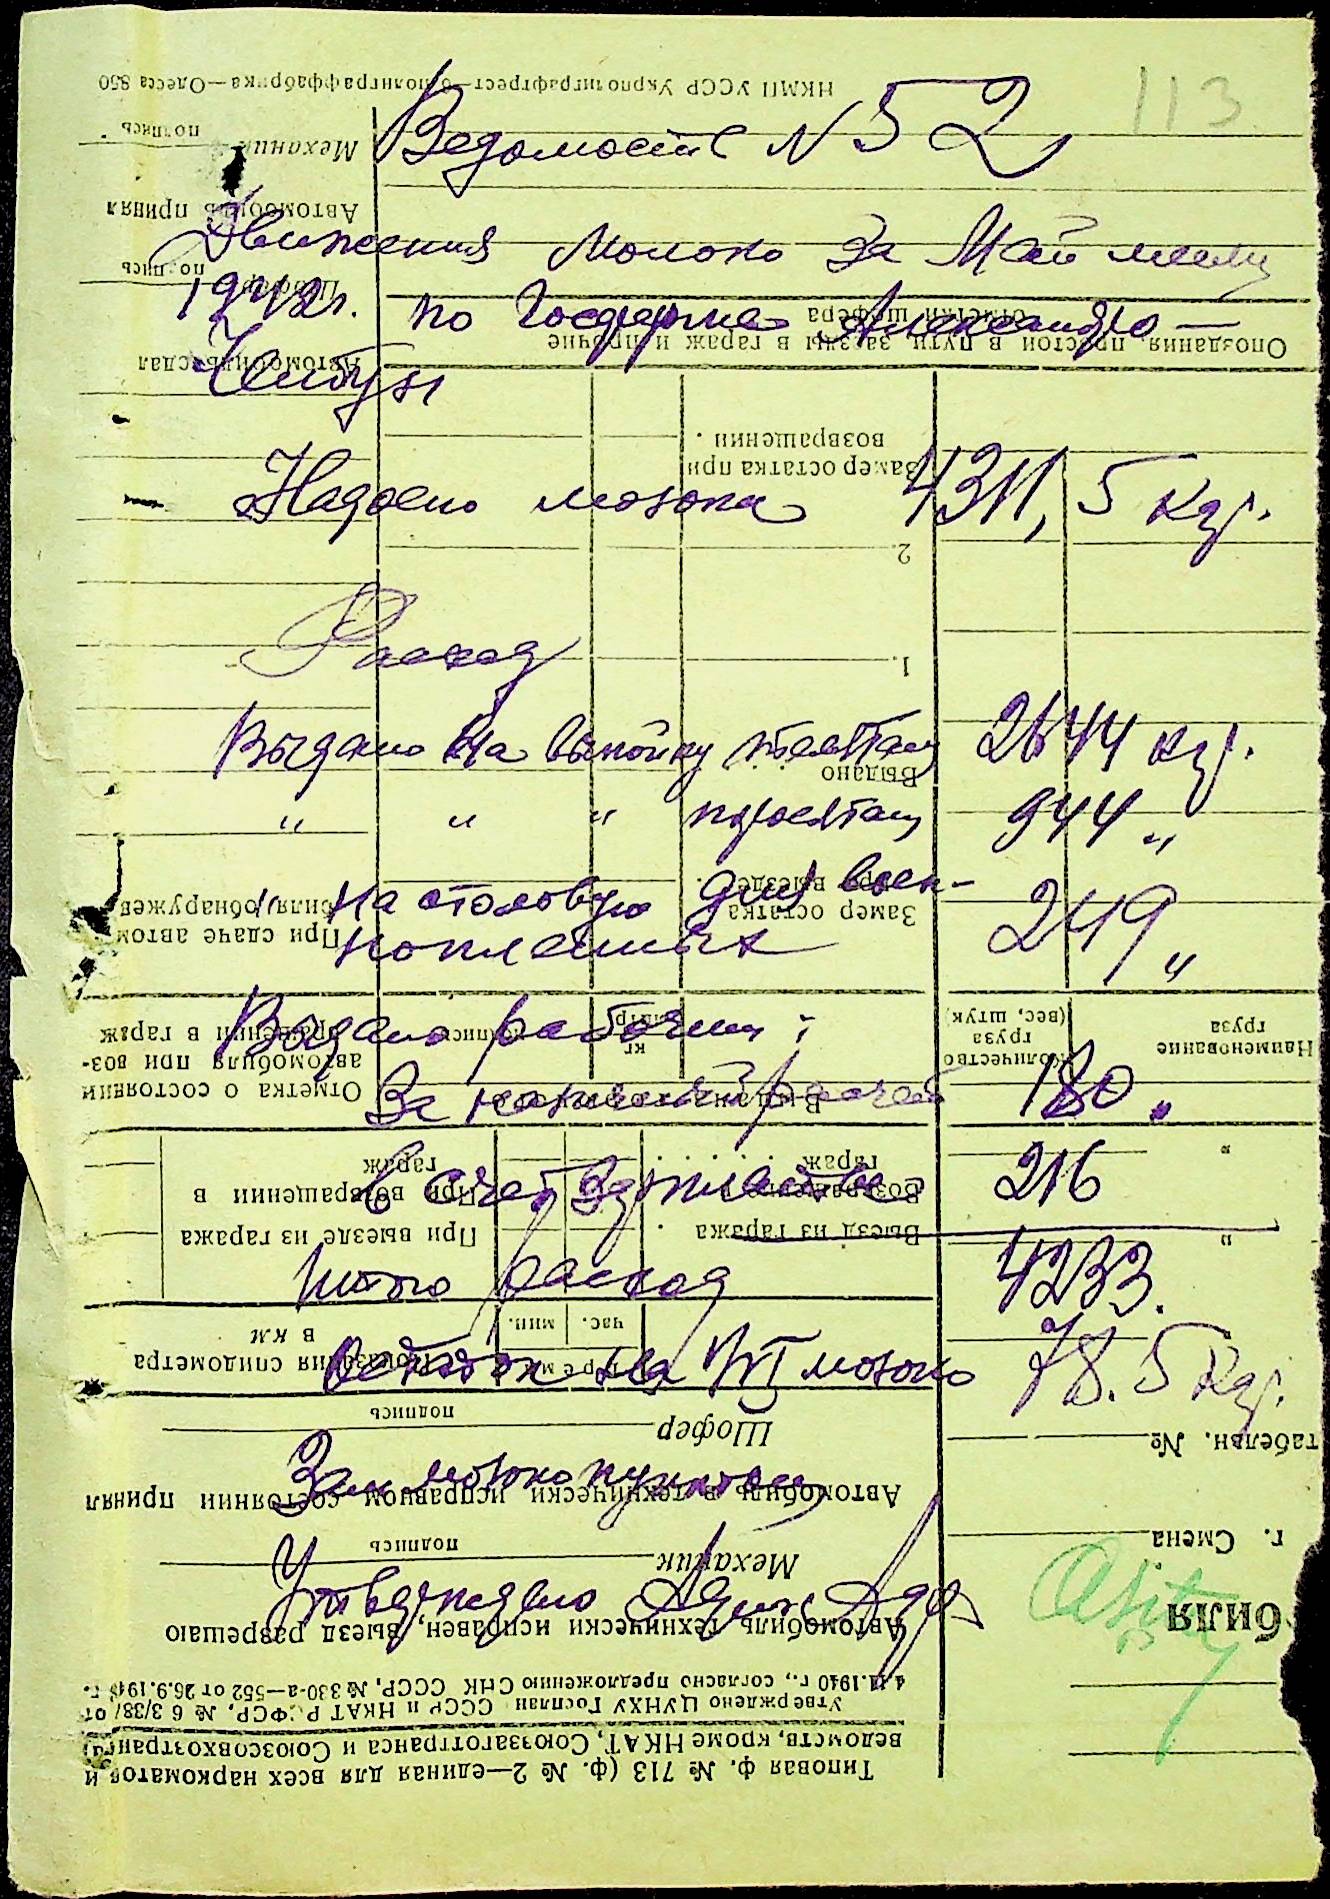 113
Ведомость N 52
Движения молоко за Май месяц
1942 г. по Госферме Александро —
Чембур
Надоено молока 4311,5 кгр.
Расход
Выдано на выпойку телятам 2644 кгр.
" " " поросятам 944 "
" На столовую для воен-
нопленных 249 "
Выдано рабочим:
За наличный расчет 180 "
в счет зарплаты 216
Итого расход 4233.
Остаток на 1/VI молоко 78.5 кгр.
Зав молокопунктом
Утверждено
НКМП УССР Укрполиграфтрест—6 полиграффабрика—Одесса 850
Типовая ф. № 713 (ф. № 2—единая для всех наркоматов и
ведомств, кроме НКАТ, Союззаготтранса и Союзсовхозтранса)
Утверждено ЦУНХУ Госплан СССР и НКАТ РСФСР, № 6 3/38/ от
4.11.1940 г., согласно предложению СНК СССР, № 330-а—552 от 26.9.1940 г.
биля
Автомобиль технически исправен, выезд разрешаю
Механик
подпись
г. Смена
Автомобиль в технически исправном состоянии принял
Шофер
подпись
табельн. №
Показания спидометра
в км
Время
час. мин.
При выезде из гаража
Выезд из гаража
При возвращении в
гараж
Возвращение в
гараж
Отметка о состоянии
автомобиля при воз-
вращении в гараж
Выдано
кг литр подпись
Наименование
груза
Количество
груза
(вес, штук)
При сдаче автом
биля обнаружен
Замер остатка
при выезде
Выдано
1.
2.
Замер остатка при
возвращении
Автомобиль сдал
Шофер
подпись
Опоздания, простои в пути, заезды в гараж и прочие
отметки шофера
Автомобиль принял
Механик
подпись